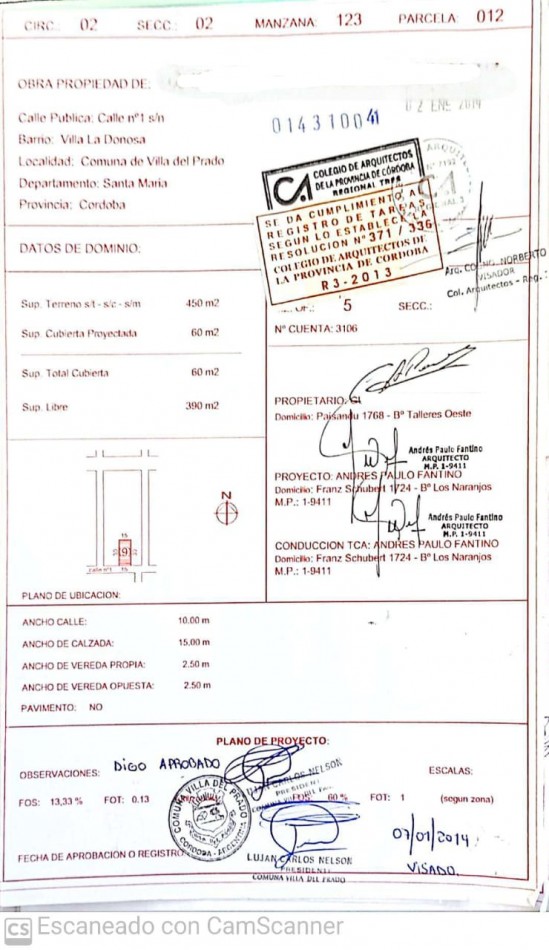 CIRC.: 02 SECC.: 02 MANZANA: 123 PARCELA: 012
OBRA PROPIEDAD DE:
02 ENE 2014
Calle Publica: Calle nº1 s/n
01431004
Barrio: Villa La Donosa
Localidad: Comuna de Villa del Prado
Departamento: Santa Maria
Provincia: Cordoba
CA COLEGIO DE ARQUITECTOS
DE LA PROVINCIA DE CÓRDOBA
REGIONAL TRES
SE DA CUMPLIMIENTO AL
REGISTRO DE TAREAS
SEGUN LO ESTABLECE LA
RESOLUCION Nº 371 / 336
COLEGIO DE ARQUITECTOS DE
LA PROVINCIA DE CORDOBA
R3-2013
NORBERTO
VISADOR
Col. Arquitectos - Reg.
DATOS DE DOMINIO:
Sup. Terreno s/t - s/c - s/m 450 m2
Sup. Cubierta Proyectada 60 m2
Sup. Total Cubierta 60 m2
Sup. Libre 390 m2
5 SECC.:
Nº CUENTA: 3106
PROPIETARIO:
Domicilio: Paisandu 1768 - Bº Talleres Oeste
Andrés Paulo Fantino
ARQUITECTO
M.P. 1-9411
PROYECTO: ANDRES PAULO FANTINO
Domicilio: Franz Schubert 1724 - Bº Los Naranjos
M.P.: 1-9411
Andrés Paulo Fantino
ARQUITECTO
M.P. 1-9411
CONDUCCION TCA: ANDRES PAULO FANTINO
Domicilio: Franz Schubert 1724 - Bº Los Naranjos
M.P.: 1-9411
N
15
9
15
PLANO DE UBICACION:
ANCHO CALLE: 10.00 m
ANCHO DE CALZADA: 15.00 m
ANCHO DE VEREDA PROPIA: 2.50 m
ANCHO DE VEREDA OPUESTA: 2.50 m
PAVIMENTO: NO
PLANO DE PROYECTO:
OBSERVACIONES: DIGO APROBADO
ESCALAS:
CARLOS NELSON
PRESIDENTE
FOS: 13,33 % FOT: 0.13 60 % FOT: 1 (segun zona)
COMUNA VILLA DEL PRADO
CORDOBA - ARGENTINA
07/01/2014
VISADO.
FECHA DE APROBACION O REGISTRO
LUJAN CARLOS NELSON
PRESIDENTE
COMUNA VILLA DEL PRADO
CS Escaneado con CamScanner